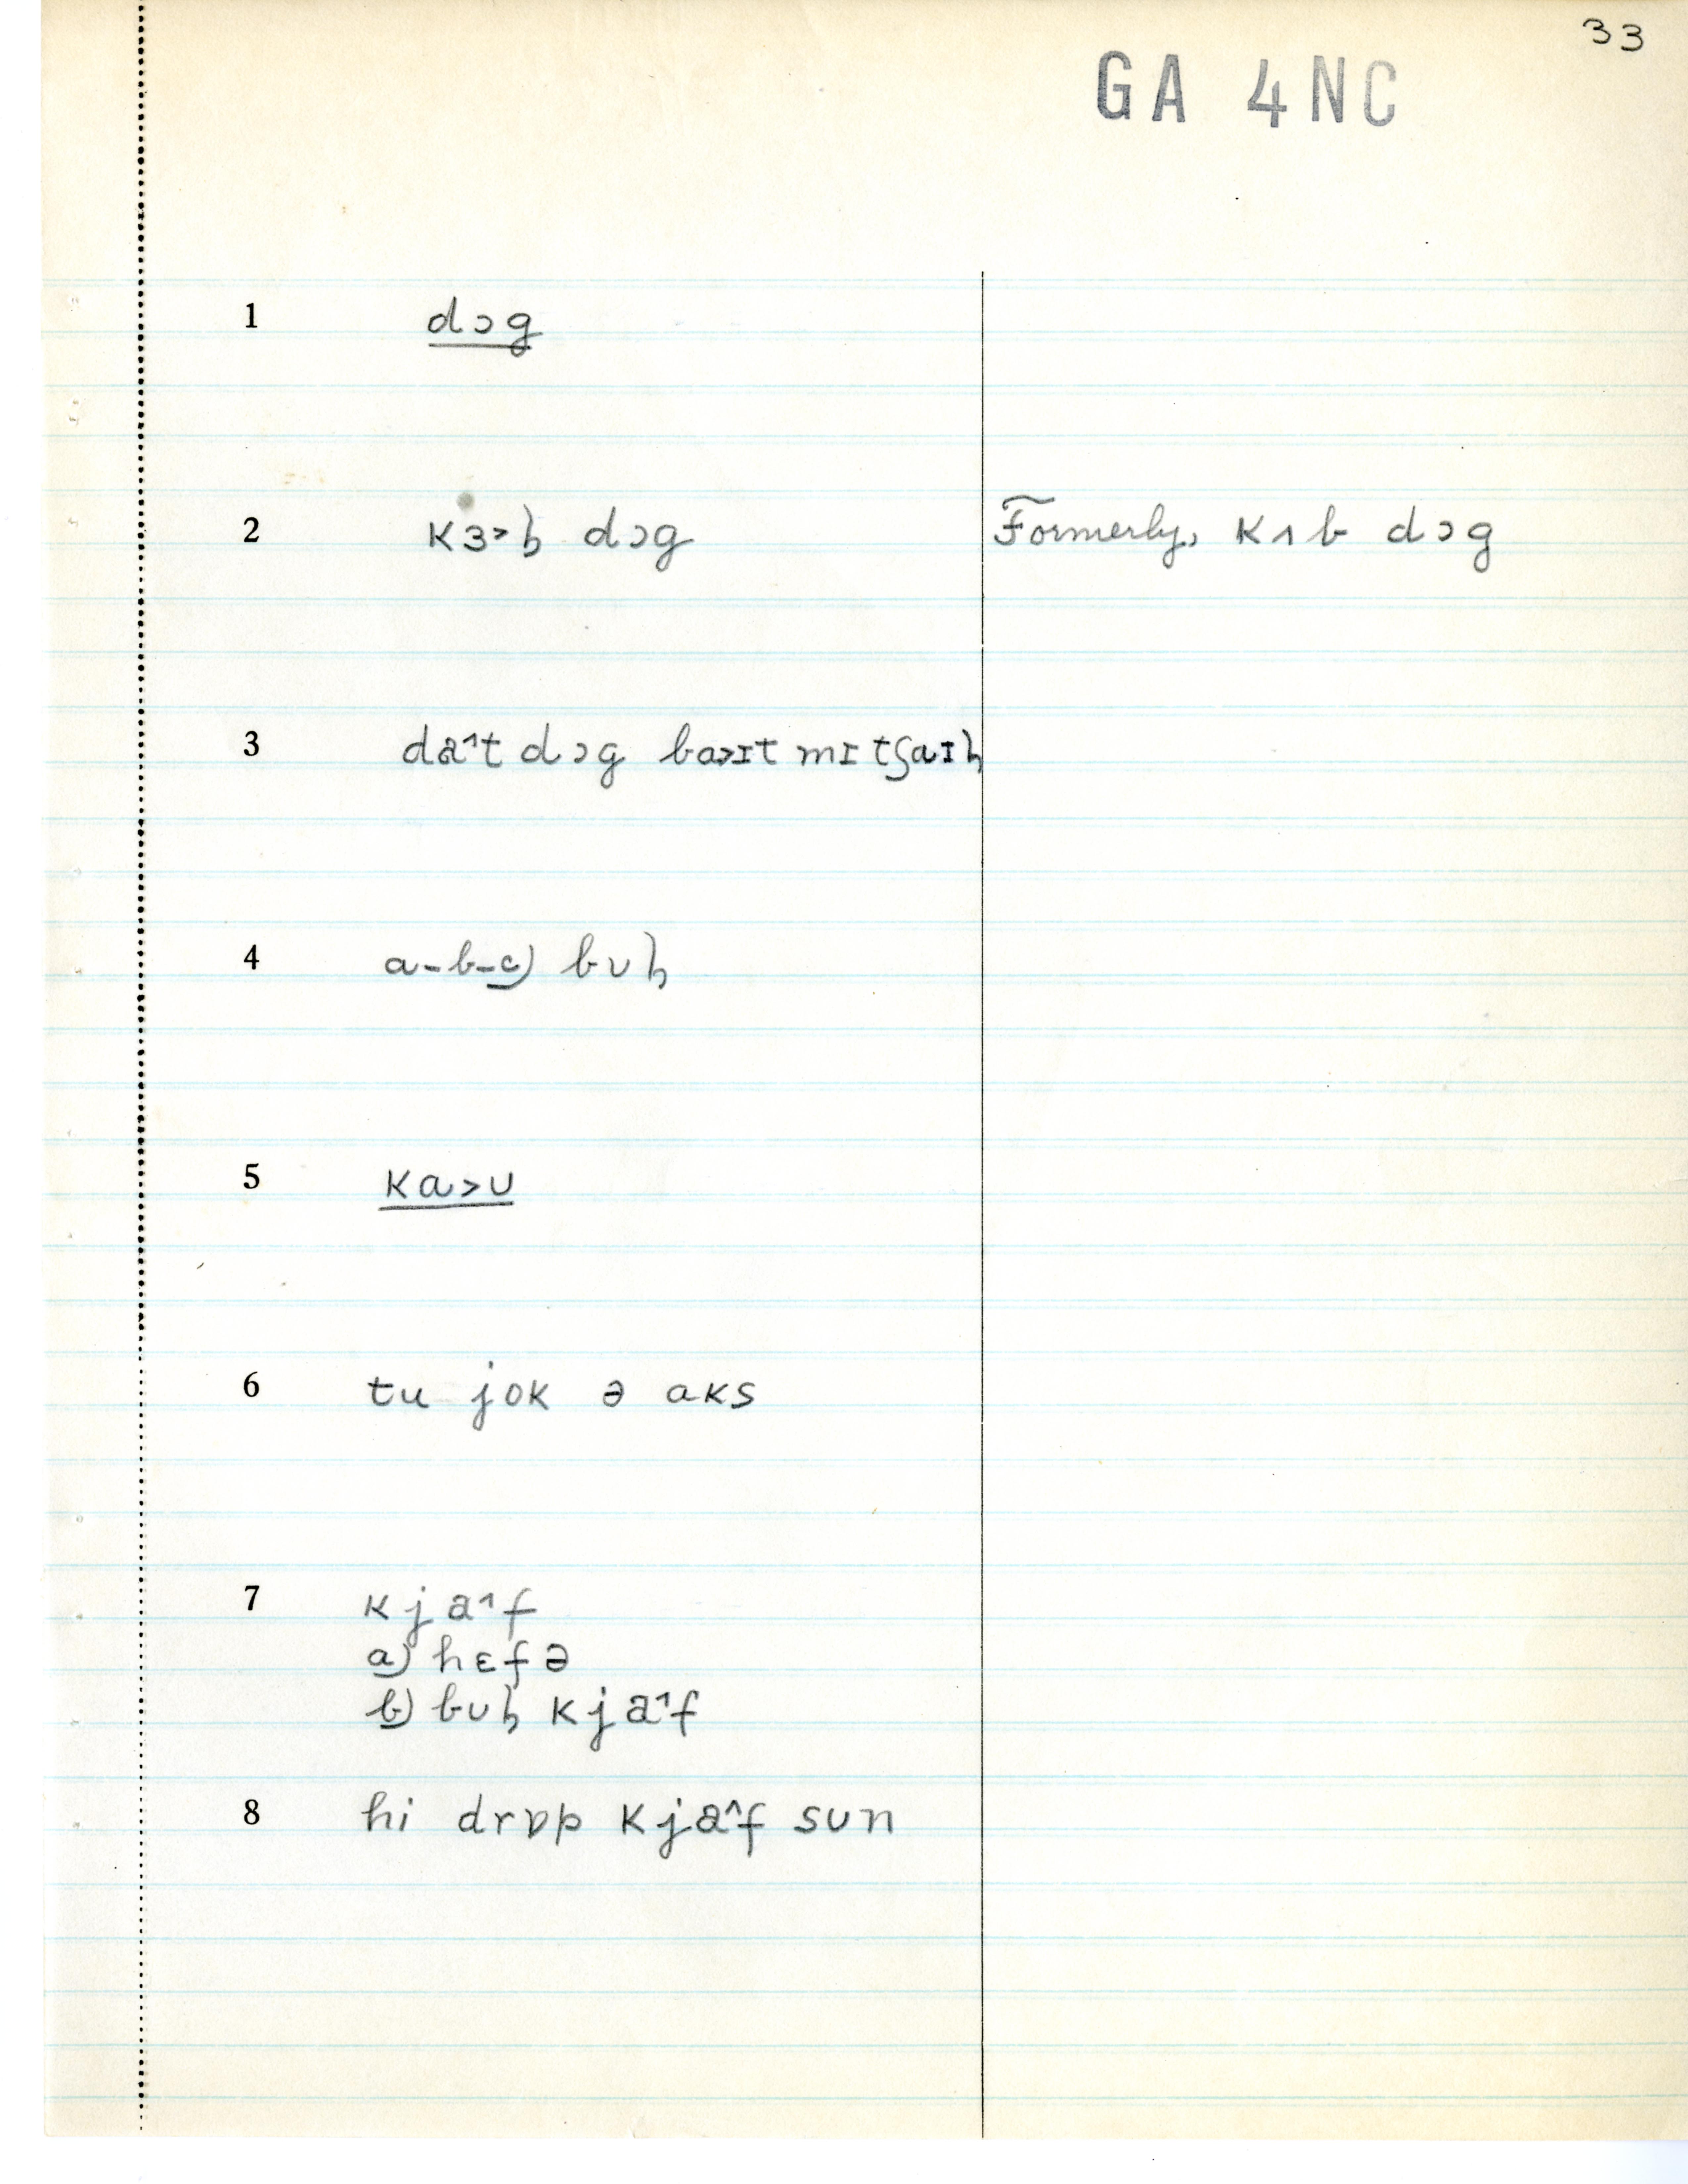 33
GA 4NC
1 dɔg
2 kɜ˃ɦ dɔg Formerly, kʌb dɔg
3 da˄t dɔg ba˃ɪt mɪ tʃaɪɦ
4 a-b-c) bʊɦ
5 ka˃ʊ
6 tu jok ə aks
7 kja˄f
a) hɛfə
b) bʊɦ kja˄f
8 hi drɒp kja˄f sʊn